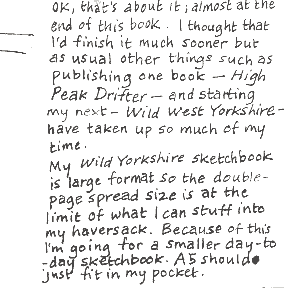 OK, that's about it; almost at the
end of this book. I thought that
I'd finish it much sooner but
as usual other things such as
publishing one book – High
Peak Drifter – and starting
my next – Wild West Yorkshire –
have taken up so much of my
time.
My Wild Yorkshire sketchbook
is large format so the double-
page spread size is at the
limit of what I can stuff into
my haversack. Because of this
I'm going for a smaller day-to
-day sketchbook. A5 should
just fit in my pocket.